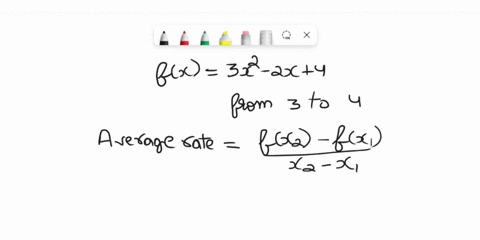 f(x) = 3x² - 2x + 4
from 3 to 4
Average rate = f(x₂) - f(x₁) / x₂ - x₁